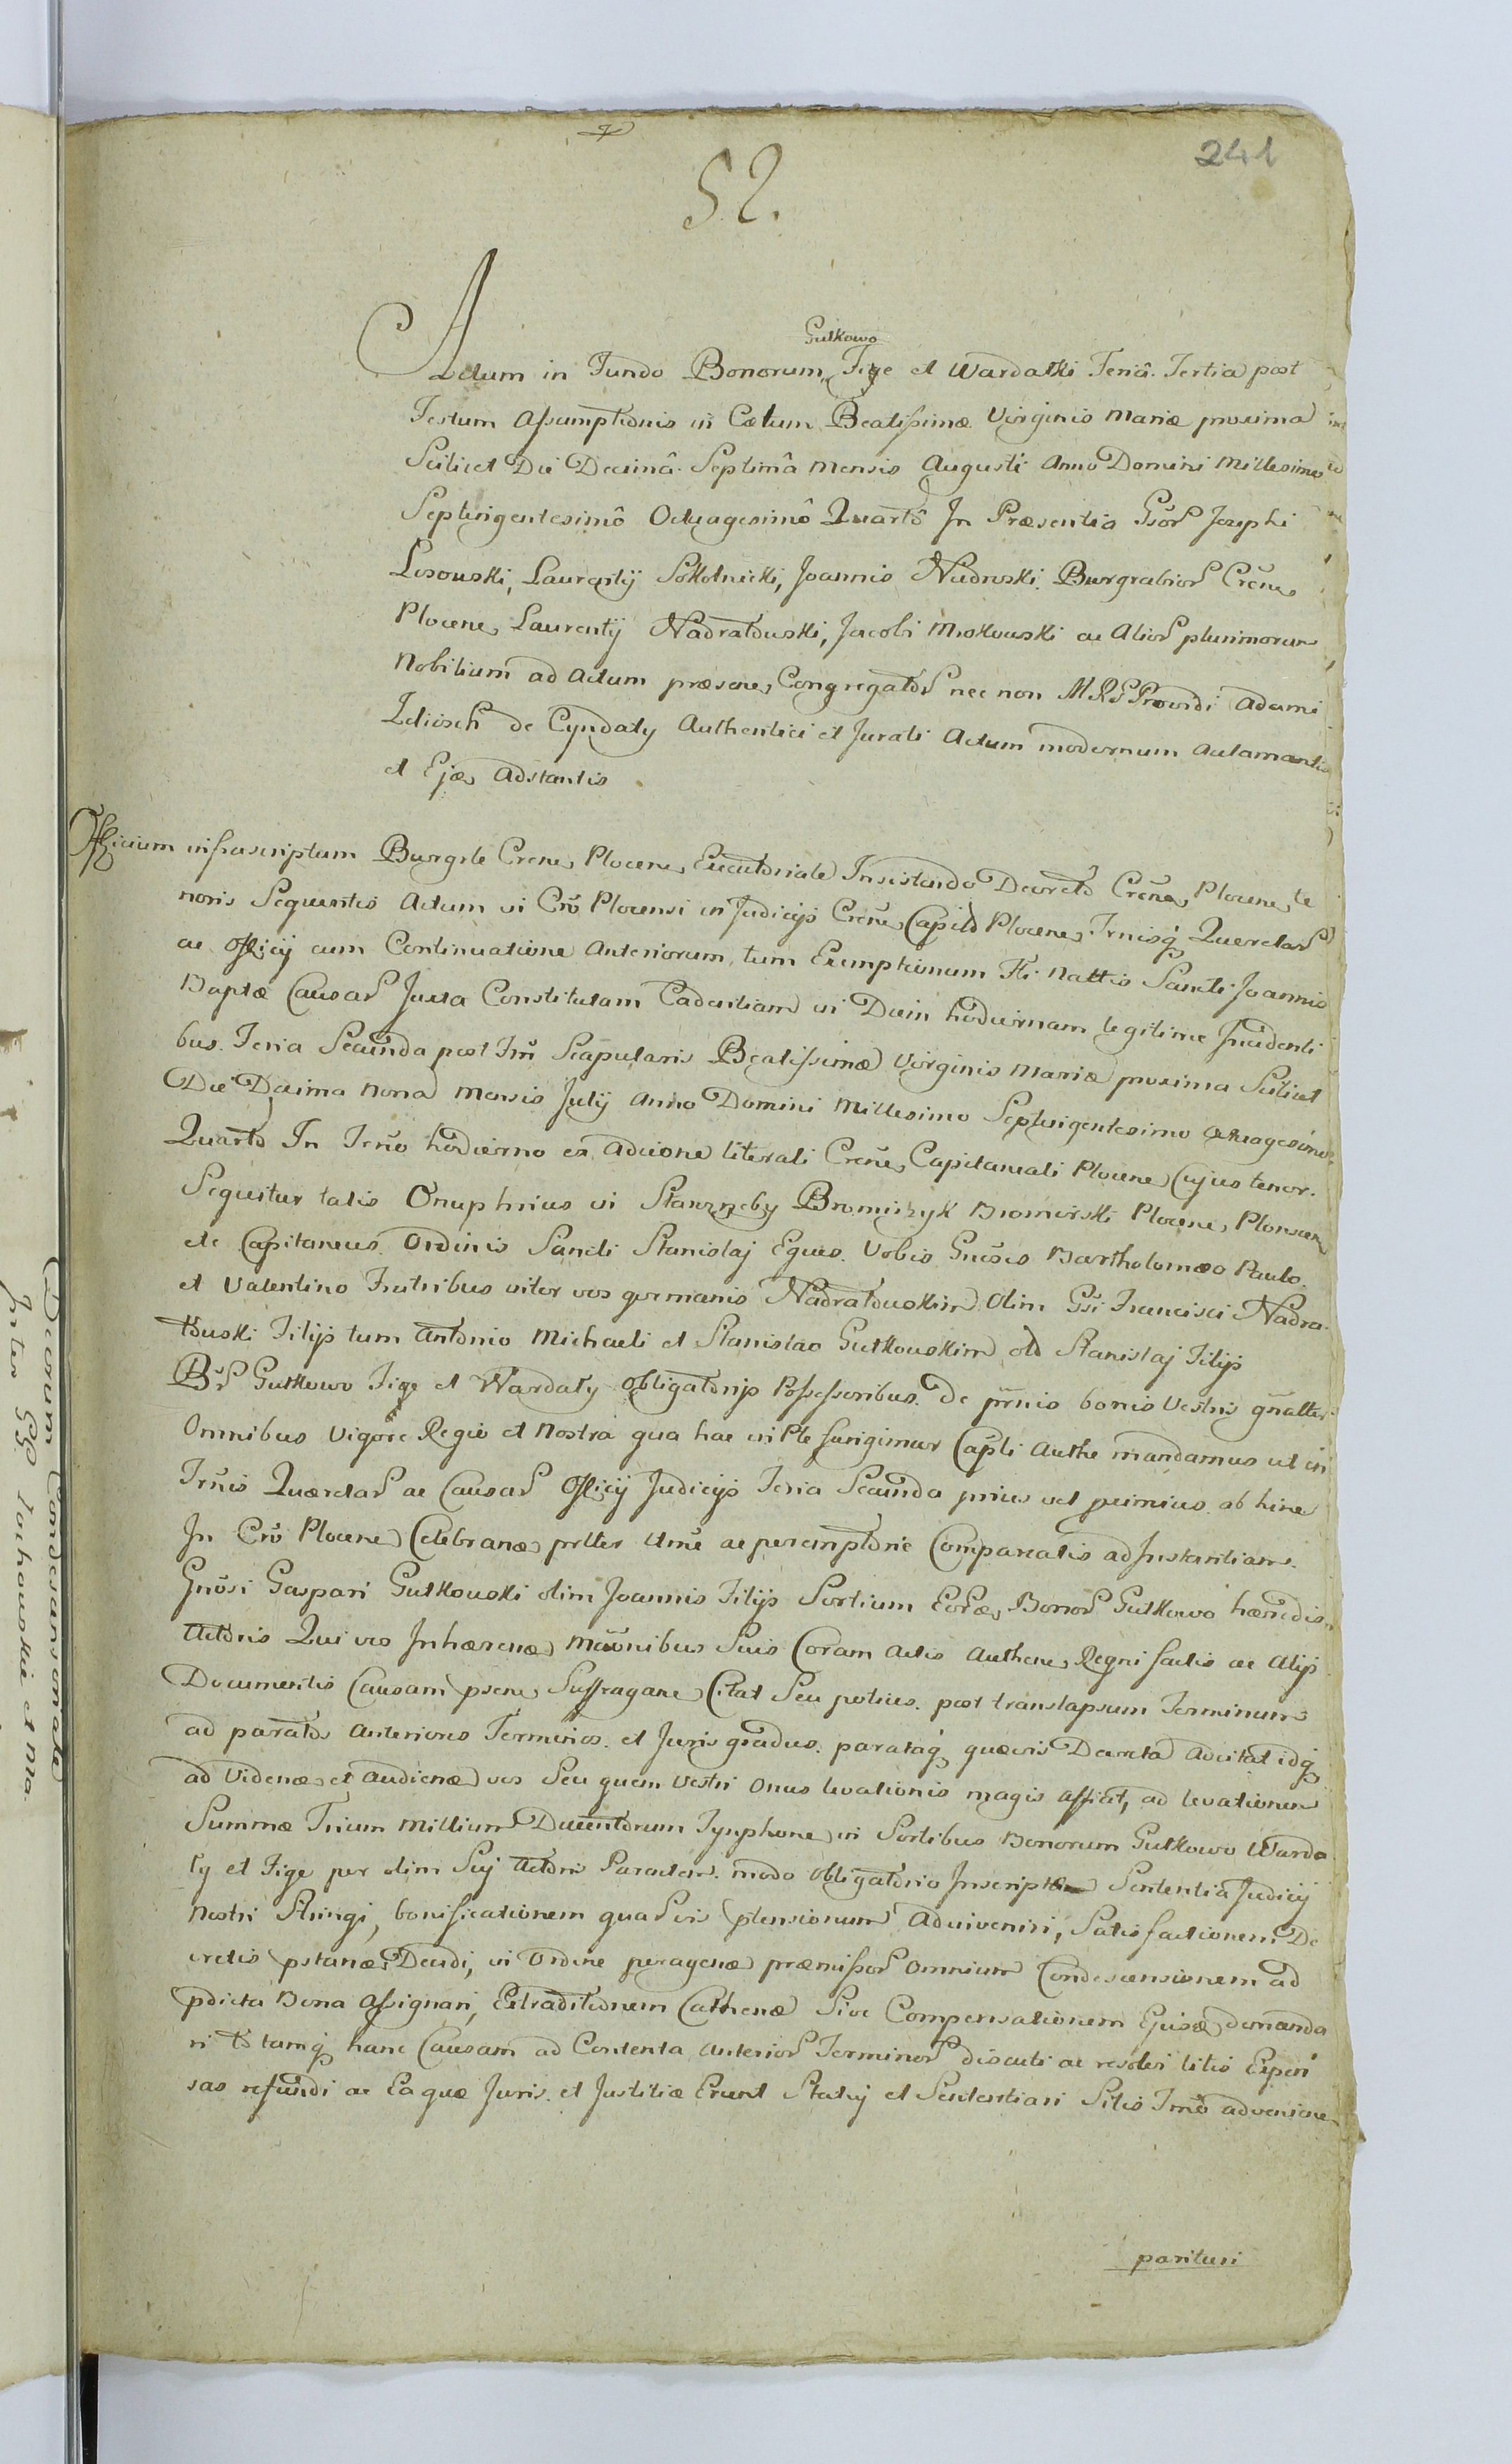 241
52.
Gutkowo
Actum in Fundo Bonorum Fige et Wardałki Feriâ Tertia post
Festum Assumptionis in Cœlum Beatissimæ Virginis Mariæ proxima
Scilicet Die Decimâ Septimâ Mensis Augusti Anno Domini Millesimo
Septingentesimô Octuagesimô Quartô In Præsentia Gsor Josephi
Losowski, Laurentij Sokolnicki, Joannis Nudnoski Burgrabior Crēns
Plocens Laurentij Nadratowski, Jacobi Miokowski ac Alior plurimorum
Nobilium ad Actum præsens Congregator nec non M R S Provdi Adami
de Cyndaty Authentici et Jurati Actum modernum aclamantis
et Ejæ Adstantis
Officium infrascriptum Burgrle Crens Plocens Executoriale Insistendo Decreto Crens Plocens te
noris Sequentis Actum in Cro Plocensi in Judicijs Crens Capitō Plocens Trnisq Querelar
ac Officij cum Continuatione Anteriorum, tum Exemptionum Fti Nattis Sancti Joannis
Baptæ Causar Juxta Constitutam Cadentiam in Diem hodiernam legitime Incidenti
bus. Feria Secunda post Fm Scapularis Beatissimæ Virginis Mariæ proxima Scilicet
Die Decima Nona Mensis Julij Anno Domini Millesimo Septingentesimo Octuagesimo
Quarto In Termo hodierno ex adcione literali Crens Capitaneali Plocens Cujus tenor
Sequitur talis Onuphrius in Starzreby Bromirzyk Bromirski Plocens Plonscen
etc Capitaneus Ordinis Sancti Stanislaj Eques Vobis Gnosis Bartholomæo Paulo
et Valentino Fratribus inter vos germanis Nadratowskim Olim Gsi Francisci Nadra
towski Filijs tum Antonio Michaeli et Stanislao Gutkowskim old Stanislaj Filijs
Br Gutkowo Fige et Wardaty obligatorijs Possessoribus De prnis bonis Vestris gnalter
Omnibus Vigore Regio et Nostra qua hac in Pte fungimur Capli Authe mandamus ut in
Trnis Quærelar ac Causar Officij Judicijs Feria Secunda prius vel proximius ab hinc
In Cro Plocens Celebranæ prlter Ltme ac peremptorie Compareatis ad Instantiam
Gnosi Gaspari Gutkowski olim Joannis Filijs Sortium Eoræ Bonor Gutkowo hæredis
Actoris Qui vos Inhærenæ Mōnibus Suis Coram Actis Authens Regni factis ac Alijs
Documentis Causam psens Suffragane Citat Seu potius post translapsum Terminum
ad paratos anteriores Terminos et Juris gradus paratąq quævis Decreta Adcitat idq
ad Videnæ et Audienæ vos Seu quem Vestri onus levationis magis afficit, ad levationem
Summæ Trium Millium Ducentorum Tynphone in Sortibus Bonorum Gutkowo Warda
ty et Fige per olim Suj Actoris Parentem modo Obligatorio Inscriptæ Sententia Judicij
Nostri Stringi, bonificationem quarvis ptensionum Adinveniri, Satisfactionem De
cretis pstanæ Decidi, in Ordine peragenæ præmissor Omnium Condescensionem ad
pdicta Bona Assignari, Extraditionem Cathenæ Sive Compensationem Ejusæ demanda
ri totamq hanc Causam ad Contenta Anterior Terminor discuti ac resolvi litis Expen
sas refundi ac Ea quæ Juris et Justitiæ Erunt Statuj et Sententiari Sitis Tmo adveniens
parituri
Decretum Condescensionale
Inter GG Lochowskie et Ma